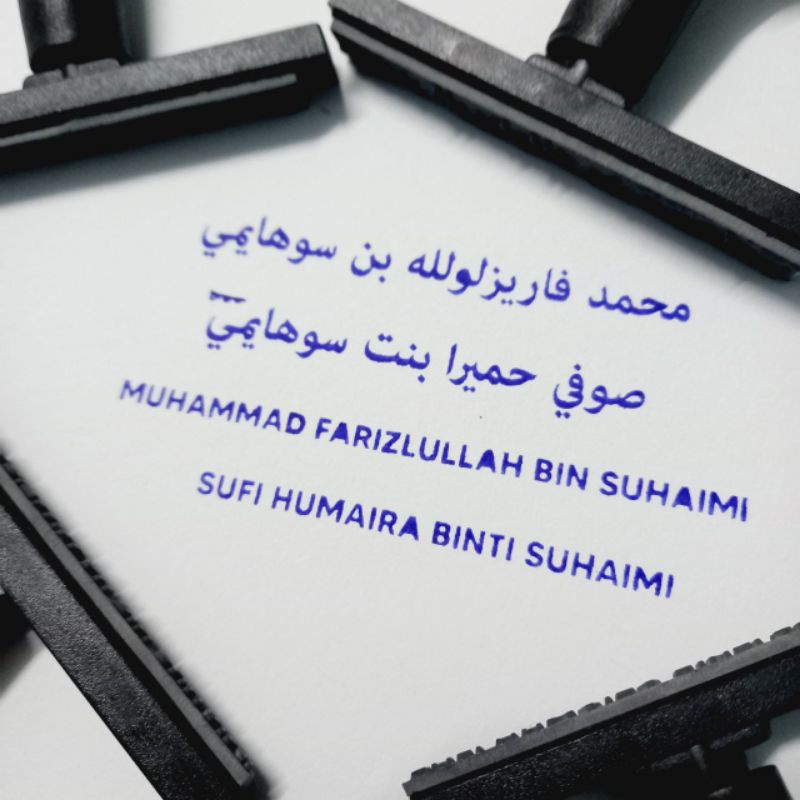 محمد فاريزلولله بن سوهايمي
صوفي حميرا بنت سوهايمي
MUHAMMAD FARIZLULLAH BIN SUHAIMI
SUFI HUMAIRA BINTI SUHAIMI